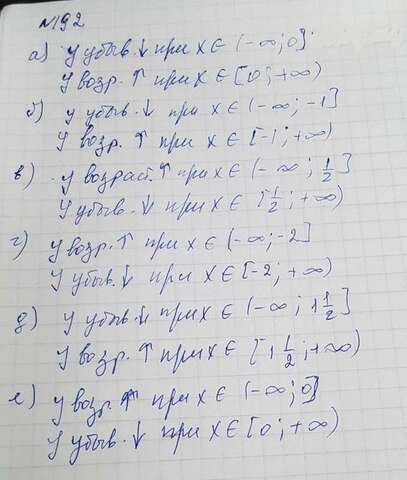 №192
а) у убыв. ↓ при х ∈ (-∞; 0]
У возр. ↑ при х ∈ [0; +∞)
б) у убыв. ↓ при х ∈ (-∞; -1]
У возр. ↑ при х ∈ [-1; +∞)
в) у возраст. ↑ при х ∈ (-∞; 1/2]
У убыв. ↓ при х ∈ [1/2; +∞)
г) у возр. ↑ при х ∈ (-∞; -2]
У убыв. ↓ при х ∈ [-2; +∞)
д) у убыв. ↓ при х ∈ (-∞; 1 1/2]
У возр. ↑ при х ∈ [1 1/2; +∞)
е) у возр. ↑ при х ∈ (-∞; 0]
У убыв. ↓ при х ∈ [0; +∞)